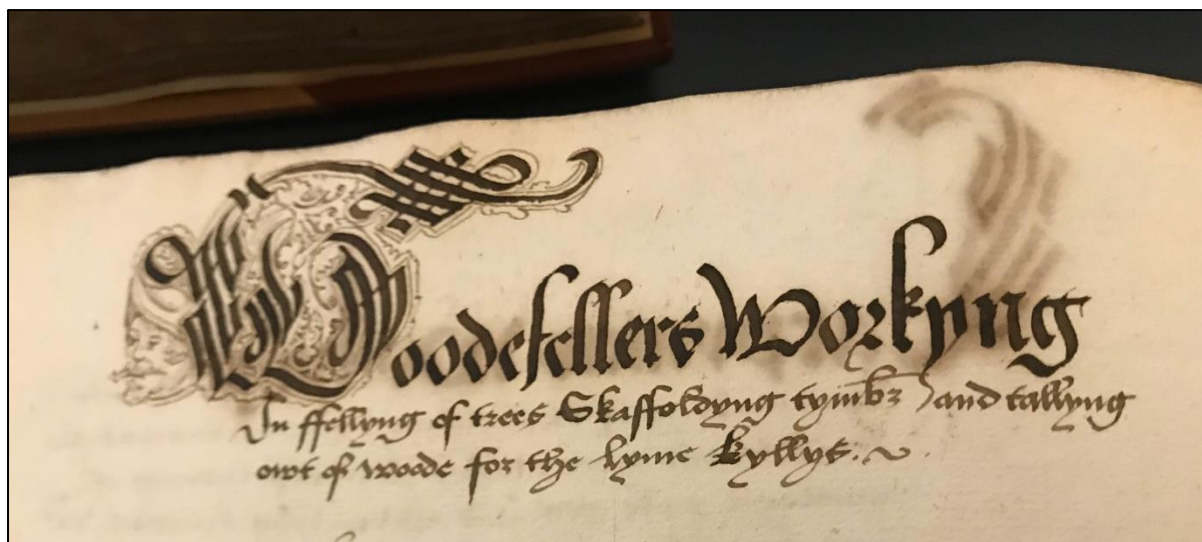 Woodefellers Workyng
In ffellyng of trees Skaffoldyng tymbz and tallyng
owt of woode for the lyme kyllys.